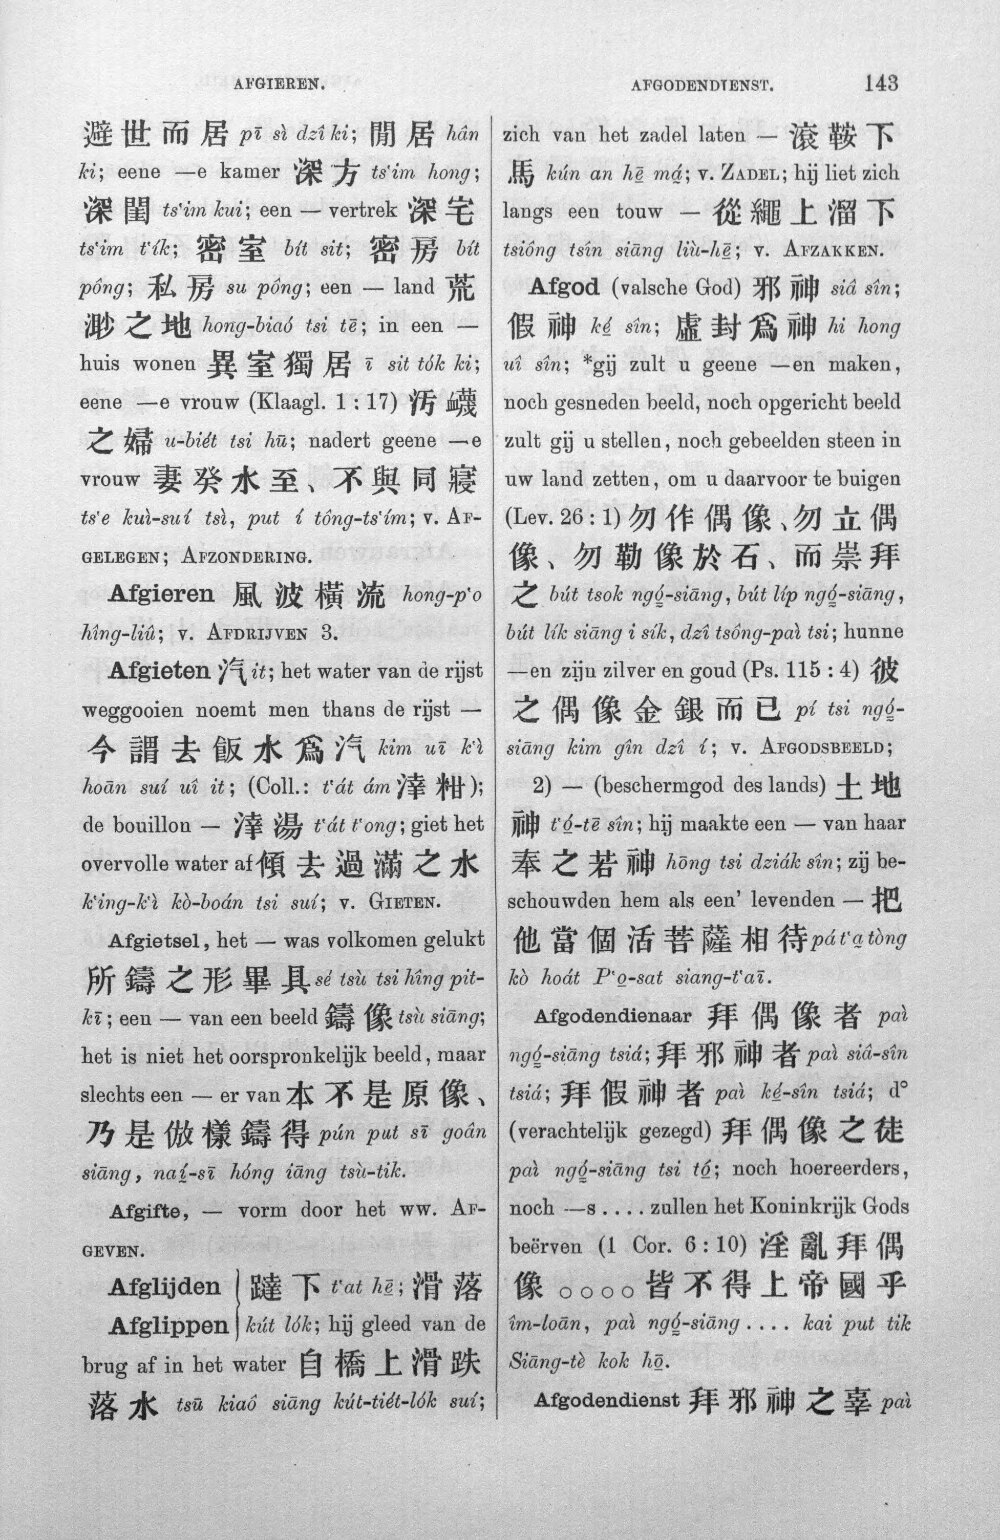 AFGIEREN.
避世而居 pī sì dzî ki; 閒居 hân
ki; eene —e kamer 深方 ts‘im hong;
深閨 ts‘im kui; een — vertrek 深宅
ts‘im t‘ík; 密室 bít sit; 密房 bít
pông; 私房 su pông; een — land 荒
渺之地 hong-biaó tsi tē; in een —
huis wonen 異室獨居 ī sit tók ki;
eene —e vrouw (Klaagl. 1 : 17) 汚衊
之婦 u-biét tsi hū; nadert geene —e
vrouw 妻癸水至、不與同寢
ts‘e kuì-suí tsì, put í tông-ts‘ím; v. AF-
GELEGEN; AFZONDERING.
Afgieren 風波橫流 hong-p‘o
hîng-liû; v. AFDRIJVEN 3.
Afgieten 汽 it; het water van de rijst
weggooien noemt men thans de rijst —
今謂去飯水爲汽 kim uī k‘ì
hoān suí uî it; (Coll.: t‘át ám 滓泔);
de bouillon — 滓湯 t‘át t‘ong; giet het
overvolle water af 傾去過滿之水
k‘ing-k‘ì kò-boán tsi suí; v. GIETEN.
Afgietsel, het — was volkomen gelukt
所鑄之形畢具 sé tsù tsi hîng pit-
kī; een — van een beeld 鑄像 tsù siāng;
het is niet het oorspronkelijk beeld, maar
slechts een — er van 本不是原像、
乃是倣樣鑄得 pún put sī goân
siāng, naí-sī hóng iāng tsù-tik.
Afgifte, — vorm door het ww. AF-
GEVEN.
Afglijden 躂下 t‘at hē; 滑落
Afglippen kút lók; hij gleed van de
brug af in het water 自橋上滑跌
落水 tsū kiaô siāng kút-tiét-lók suí;
AFGODENDIENST. 143
zich van het zadel laten — 滾鞍下
馬 kún an hē má; v. ZADEL; hij liet zich
langs een touw — 從繩上溜下
tsiông tsín siāng liù-hē; v. AFZAKKEN.
Afgod (valsche God) 邪神 siâ sîn;
假神 ké sîn; 虛封爲神 hi hong
uî sîn; *gij zult u geene —en maken,
noch gesneden beeld, noch opgericht beeld
zult gij u stellen, noch gebeelden steen in
uw land zetten, om u daarvoor te buigen
(Lev. 26 : 1) 勿作偶像、勿立偶
像、勿勒像於石、而崇拜
之 bút tsok ngó-siāng, bút líp ngó-siāng,
bút lík siāng i sík, dzî tsông-paì tsi; hunne
—en zijn zilver en goud (Ps. 115 : 4) 彼
之偶像金銀而已 pí tsi ngó-
siāng kim gîn dzî í; v. AFGODSBEELD;
2) — (beschermgod des lands) 土地
神 t‘ó-tē sîn; hij maakte een — van haar
奉之若神 hōng tsi dziák sîn; zij be-
schouwden hem als een’ levenden — 把
他當個活菩薩相待 pá t‘a tòng
kò hoát P‘o-sat siang-t‘aī.
Afgodendienaar 拜偶像者 paì
ngó-siāng tsiá; 拜邪神者 paì siâ-sîn
tsiá; 拜假神者 paì ké-sîn tsiá; d°
(verachtelijk gezegd) 拜偶像之徒
paì ngó-siāng tsi tô; noch hoereerders,
noch —s .... zullen het Koninkrijk Gods
beërven (1 Cor. 6 : 10) 淫亂拜偶
像○○○○皆不得上帝國乎
îm-loān, paì ngó-siāng .... kai put tik
Siāng-tè kok hō.
Afgodendienst 拜邪神之辜 paì